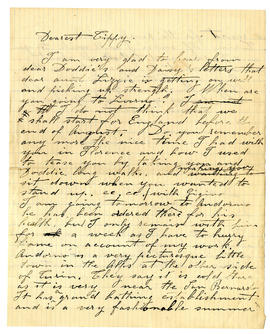 Dearest Tippy.
I am very glad to hear from
dear Doddie's and Daisy's letters that
dear aunt Lizzie is getting on well
and picking up strength. When are
you going to Livorno? I
do not think that we
shall start for England before the
end of August. Do you remember
any more the nice time I had with
you in Florence and how I used
to tease you by taking you and
Doddie long walks, and
sit down when you wanted to
stand up, e.c., e.c.,
I am going tomorrow to Andorno
he has been ordered there for his
health but I only remain with him
for a week as I have to hurry
home on account of my work.
Andorno is a very picturesque little
town in the Alps at the other side
of Turin. They say it is cold there
as it is very near the San Bernard
It has grand bathing establishments
and is a very fashionable summer